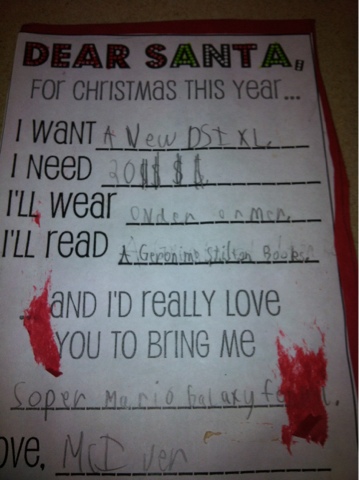 DEAR SANTA,
FOR CHRISTMAS THIS YEAR...
I WANT A New DSI XL.
I NEED
I'LL WEAR onder ormer.
I'LL READ A Geronimo Stilton Books.
AND I'D REALLY LOVE
YOU TO BRING ME
Soper Mario Galaxy
ove, McIver